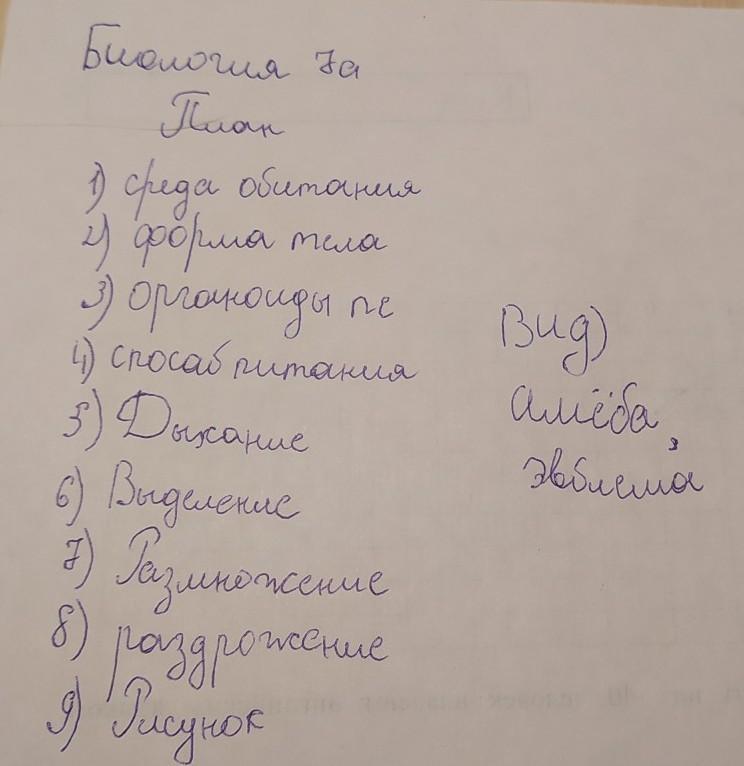 Биология 7а
План
1) среда обитания
2) форма тела
3) органоиды пе
4) способ питания
5) Дыхание
6) Выделение
7) Размножение
8) раздрожение
9) Рисунок
Вид)
амёба,
эвблема